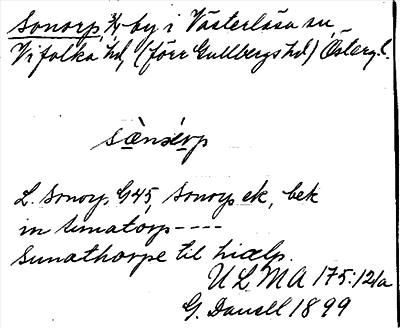 Sonorp, 3/4 by i Västerlösa sn,
Vifolka hd, (förr Gullbergs hd) Österg.l.
sònsórp
L. Sonorp G45, Sonorps ek, bek
in sunatorp ----
Sunathorpe til hialp.
ULMA 175:12/a
G. Danell 1899